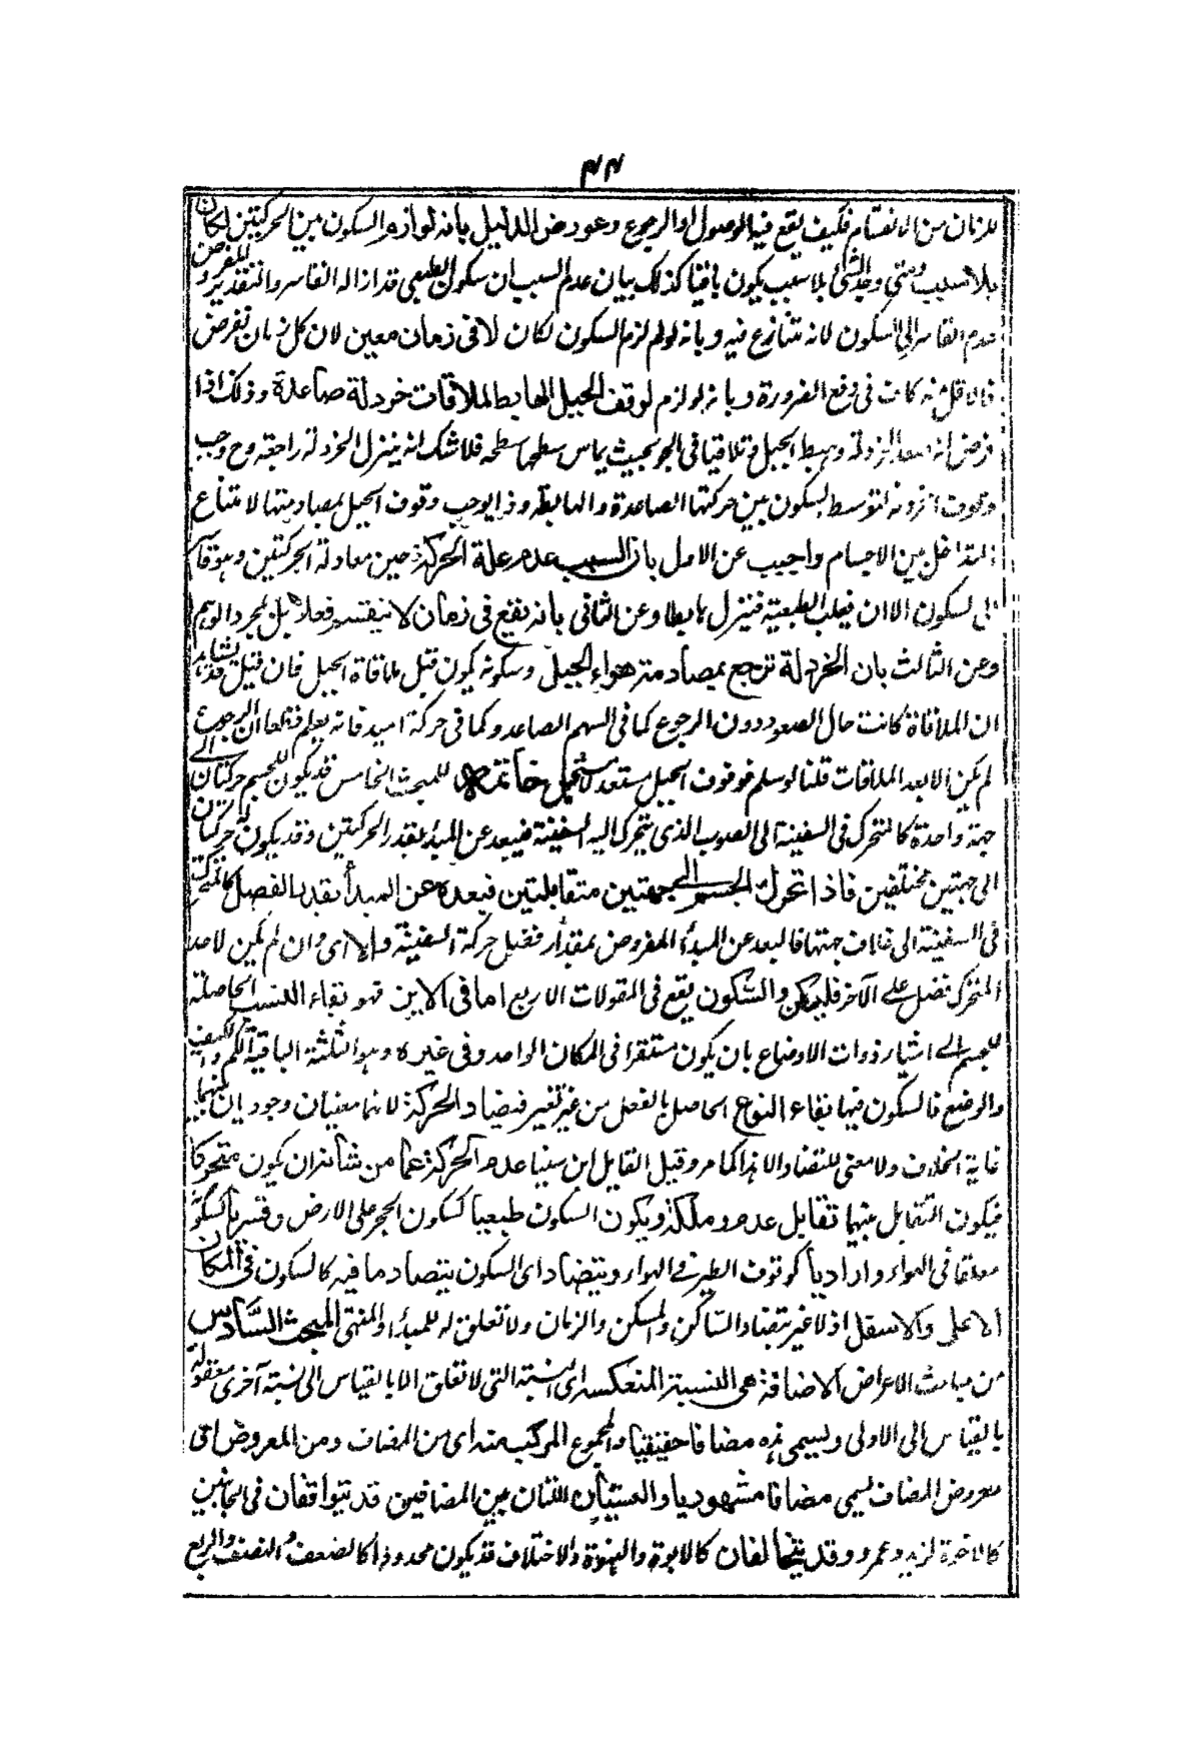 ۴۴
للزمان من الانقسام فكيف يقع فيه الوصول او الرجوع وعورض الدليل بانه لو لزم السكون بين الحركتين لكان
بلا سبب ومتى وجد الشئ بلا سبب يكون باقيا كذلك بيان عدم السبب ان سكون الطبعى قد ازاله القاسر والتقدير المفروض
عدم القاسر الى السكون لانه تنازع فيه وبانه لو لم لزم السكون لكان لا فى زمان معين لان كل زمان تفرض
فالاقل منه كانت فى دفع الضرورة وبانه لو لزم لوقف الجبل الهابط لملاقات خردلة صاعدة وذلك اذا
فرض انه الخردلة وهبط الجبل وتلاقيا فى الجو بحيث يماس سطحها سطحه فلا شك انه ينزل الخردلة راجعة وح وجب
وقوف الخردلة لتوسط السكون بين حركتها الصاعدة والهابطة وذا يوجب وقوف الجبل بمصادمتها لامتناع
التداخل بين الاجسام واجيب عن الاول بان السبب عدم علة الحركة حين معادلة الحركتين وهو
الى السكون الا ان يغلب الطبعية فينزل هابطا وعن الثانى بانه يقع فى زمان لا ينقسم فعلا بل لمجرد الوهم
وعن الثالث بان الخردلة ترجع بمصادمة هواء الجبل وسكونه يكون قبل ملاقاة الجبل فان قيل قد نشاهد
ان الملاقاة كانت حال الصعود دون الرجوع كما فى السهم الصاعد وكما فى حركة اليد فانه يعلم قطعا ان الرجوع
لم يكن الا بعد الملاقات قلنا لو سلم فوقوف الجبل مستبعد لا مستحيل خاتمة للمبحث الخامس قد يكون للجسم حركتان الى
جهة واحدة كالمتحرك فى السفينة الى الصوب الذى يتحرك اليه السفينة فيبعد عن المبدأ بقدر الحركتين وقد يكون حركتان
الى جهتين مختلفين فاذا تحرك الجسم الى جهتين متقابلتين فبعده عن المبدأ بقدر الفضل كالمتحرك
فى السفينة الى خلاف جهتها فالبعد عن المبدأ المفروض بمقدار فضل حركة السفينة والا اى وان لم يكن لاحد
المتحرك فضل على الآخر فليسكن والسكون يقع فى المقولات الاربع اما فى الاين فهو بقاء النسب الحاصلة
للجسم الى اشياء ذوات الاوضاع بان يكون مستقرا فى المكان الواحد وفى غيره وهو الثلثة الباقية الكم والكيف
والوضع فالسكون فيها بقاء النوع الحاصل بالفعل من غير تغير فيضاد الحركة لانهما معنيان وجوديان بينهما
غاية الخلاف ولا معنى للتضاد الا هذا كما مر وقيل القايل ابن سينا عدم الحركة عما من شانه ان يكون متحركا
فيكون التقابل بينهما تقابل عدم وملكة ويكون السكون طبعيا كسكون الحجر على الارض وقسريا كسكونه
معلقا فى الهواء واراديا كوقوف الطير فى الهواء ويتضاد اى السكون بتضاد ما فيه كالسكون فى المكان
الاعلى والاسفل اذ لا غير بتضاد الساكن والمسكن والزمان ولا تعلق له للمبدأ والمنتهى المبحث السادس
من مباحث الاعراض الاضافة هى النسبة المنعكسة اى النسبة التى لا تعلق الا بالقياس الى نسبة آخرى معقولة
بالقياس الى الاولى ويسمى هذه مضافا حقيقيا والمجموع المركب منه اى من المضاف ومن المعروض اى
معروض المضاف يسمى مضافا مشهوريا والنسبتان اللتان بين المضافين قد يتوافقان فى الجانبين
كالاخوة لزيد وعمرو وقد يتخالفان كالابوة والبنوة والاختلاف قد يكون محدودا كالضعف والنصف والربع